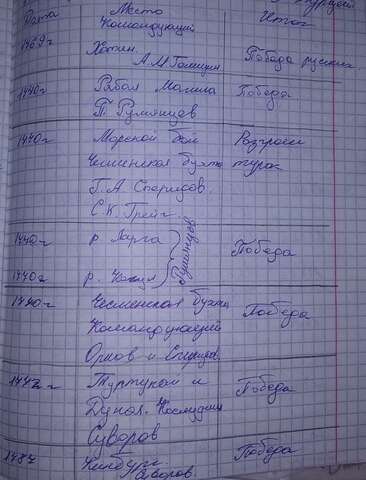 Дата Место Итог
Командующий
1769г Хотин. Победа русских
А.М Голицин
1770г Рябая Могила Победа
П Румянцев
1770г Морской бой Разгром
Чесменская бухта турок
Г.А Спиридов.
С.К. Грейг.
1770г р Ларга Румянцев Победа
1770г р. Кагул
1770г Чесменская бухта Победа
Командующий
Орлов и Спиридов
1773г Туртукай и Победа
Дунай.
Суворов
1787 Кинбурн Победа
Суворов.